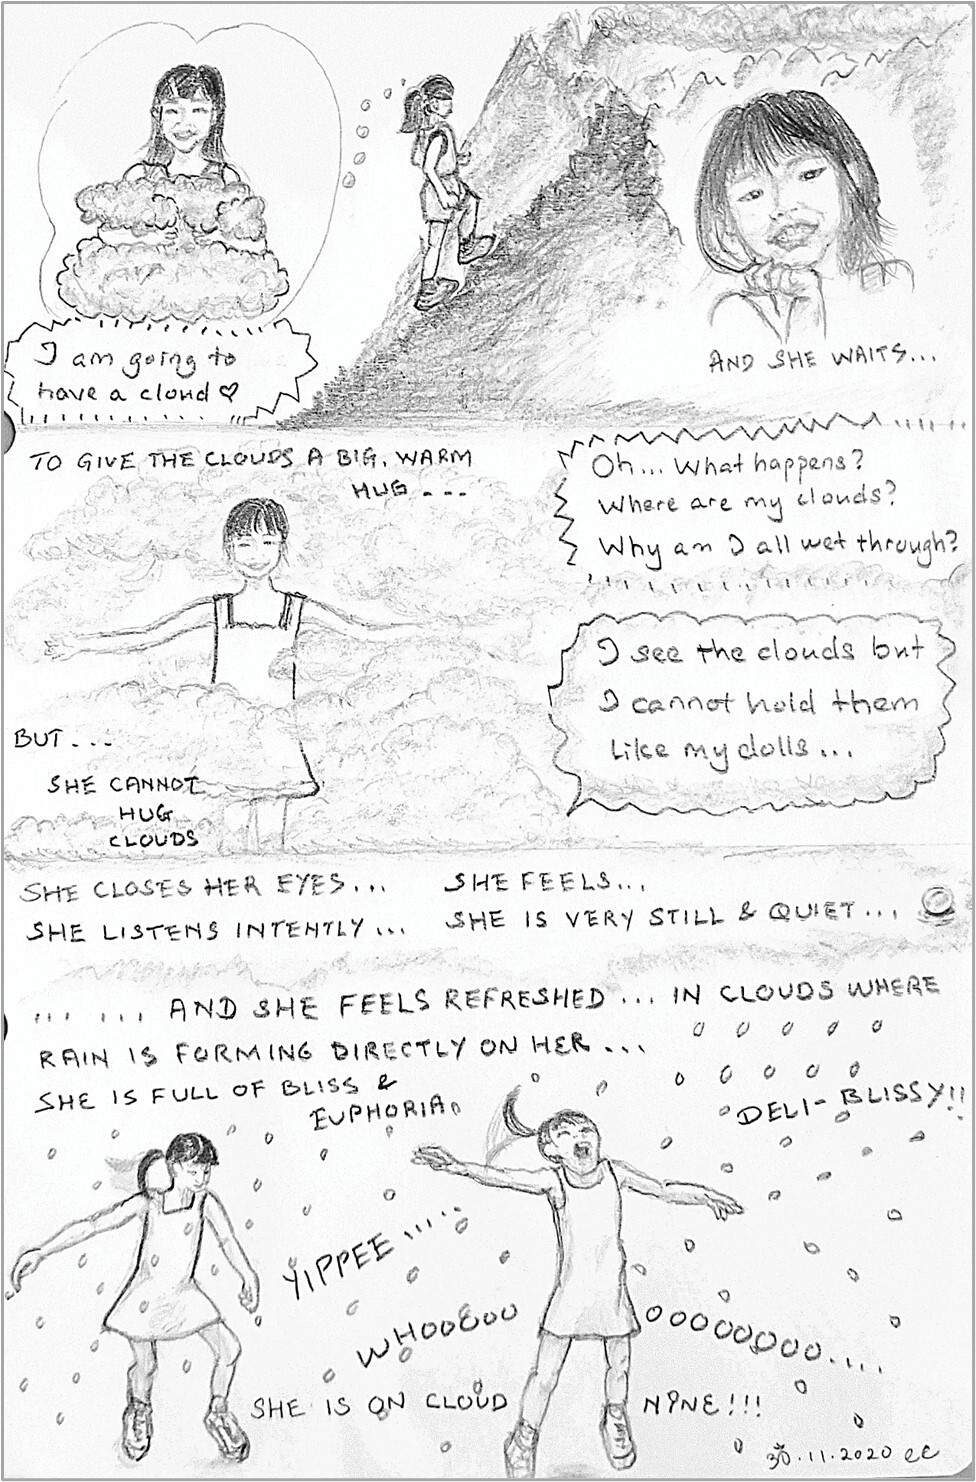 I am going to
have a cloud ♡
AND SHE WAITS...
TO GIVE THE CLOUDS A BIG, WARM
HUG ...
BUT...
SHE CANNOT
HUG
CLOUDS
Oh... What happens?
Where are my clouds?
Why am I all wet through?
I see the clouds but
I cannot hold them
like my dolls...
SHE CLOSES HER EYES... SHE FEELS...
SHE LISTENS INTENTLY... SHE IS VERY STILL & QUIET...
... ... AND SHE FEELS REFRESHED ... IN CLOUDS WHERE
RAIN IS FORMING DIRECTLY ON HER ...
SHE IS FULL OF BLISS &
EUPHORIA.
DELI-BLISSY!!
YIPPEE.....
WHOOOOO OOOOOOOOO....
SHE IS ON CLOUD NINE!!!
30.11.2020 ee